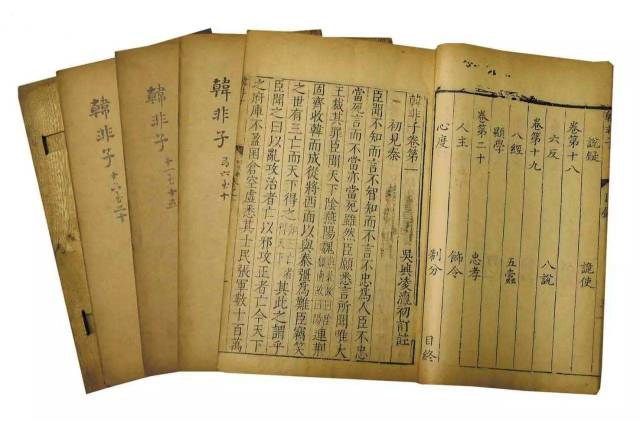 説疑 詭使
卷第十八
六反 八說
卷第十九
八經 五蠹
顯學
卷第二十 忠孝
人主 飭令
心度 制分 目終
韓非子卷第一
吳興凌瀛初訂註
初見秦
臣聞不知而言不智知而不言不忠爲人臣不忠
當死言而不當亦當死雖然臣願悉言所聞唯大
王裁其罪臣聞天下陰燕陽魏連荊
固齊收韓而成從將西面以與秦強爲難臣竊笑
之世有三亡而天下得之其此之謂乎
臣聞之曰以亂攻治者亡以邪攻正者亡今天下
之府庫不盈囷倉空虛悉其士民張軍數十百萬
韓非子
六至十
韓非子
十一至十五
韓非子
十六至二十